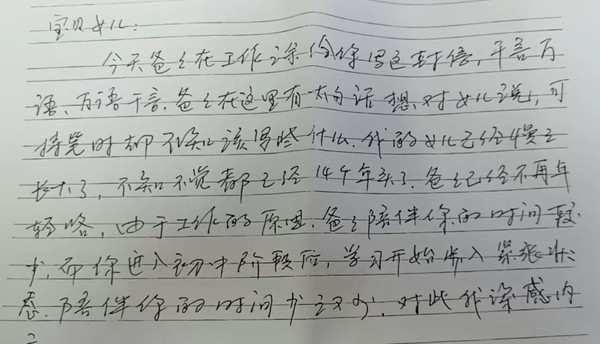 宝贝女儿:
今天爸爸在工作之余给你写这封信,千言万
语、万语千言.爸爸在这里有太多话想对女儿说,可
提笔时却不知该写些什么.我的女儿已经慢慢
长大了,不知不觉都已经14个年头了.爸爸已经不再年
轻咯,由于工作的原因.爸爸陪伴你的时间较
少,而你进入初中阶段后,学习开始步入紧张状
态.陪伴你的时间少之又少,对此我深感内